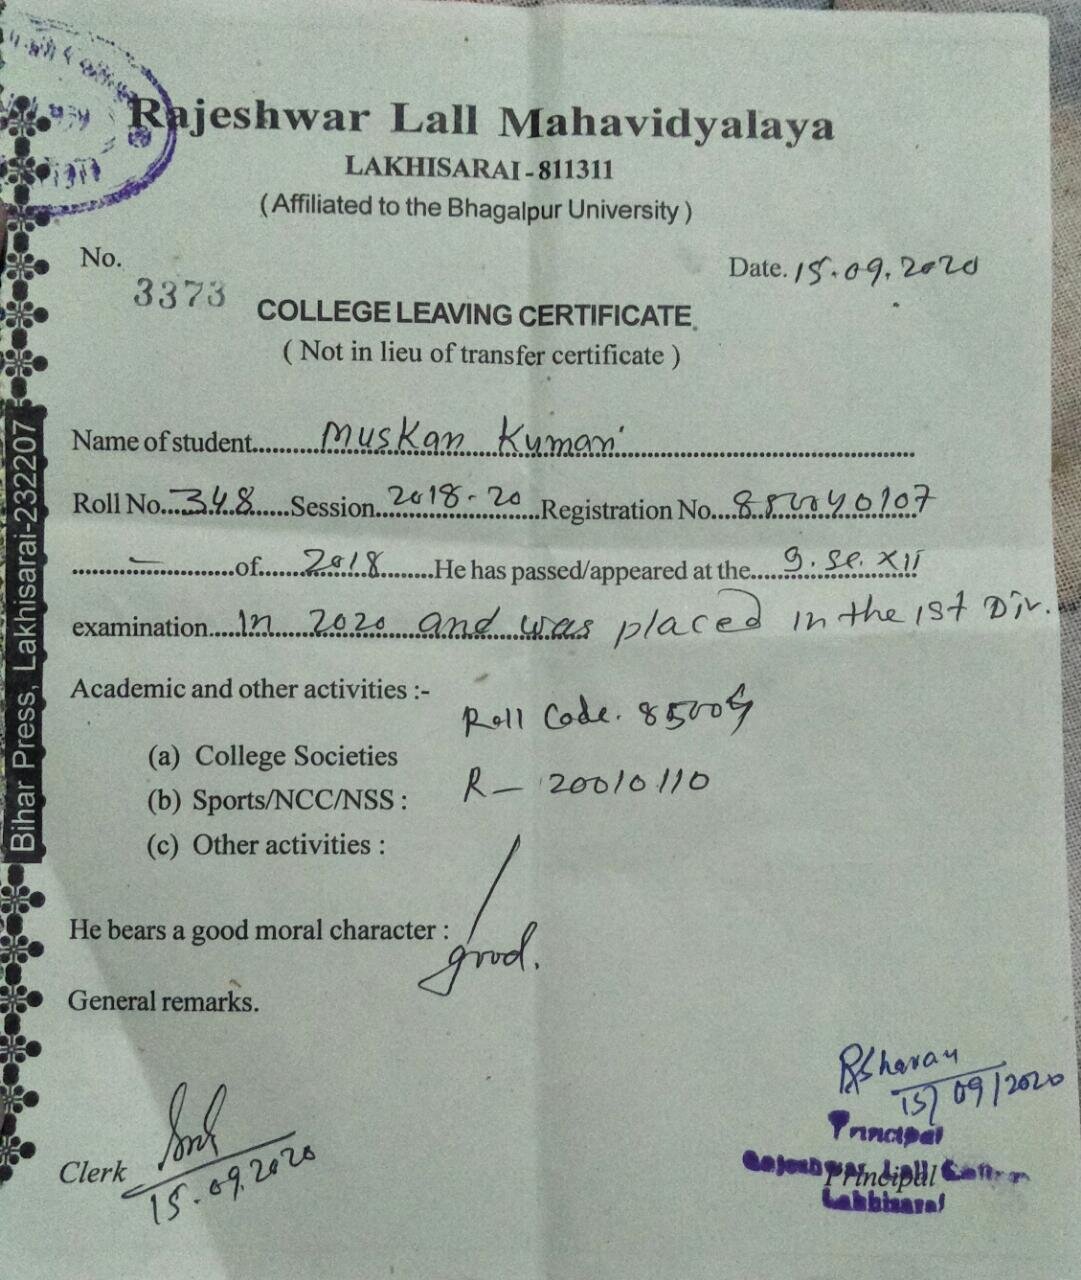 Rajeshwar Lall Mahavidyalaya
LAKHISARAI-811311
(Affiliated to the Bhagalpur University)
No. 3373
Date. 15.09.2020
COLLEGE LEAVING CERTIFICATE
( Not in lieu of transfer certificate )
Name of student........Muskan Kumari
Roll No...348......Session..2018-20..Registration No...
.....–.....of....2018......He has passed/appeared at the.....I.Sc. XII
examination....In 2020 and was placed in the 1st Div.
Academic and other activities :-
Roll Code. 85004
(a) College Societies
(b) Sports/NCC/NSS : R- 20010110
(c) Other activities :
He bears a good moral character : good.
General remarks.
RSharan
15/09/2020
Principal
Rajeshwar Lall College
Principal
Lakhisarai
Clerk
15.09.2020
Bihar Press, Lakhisarai-232207